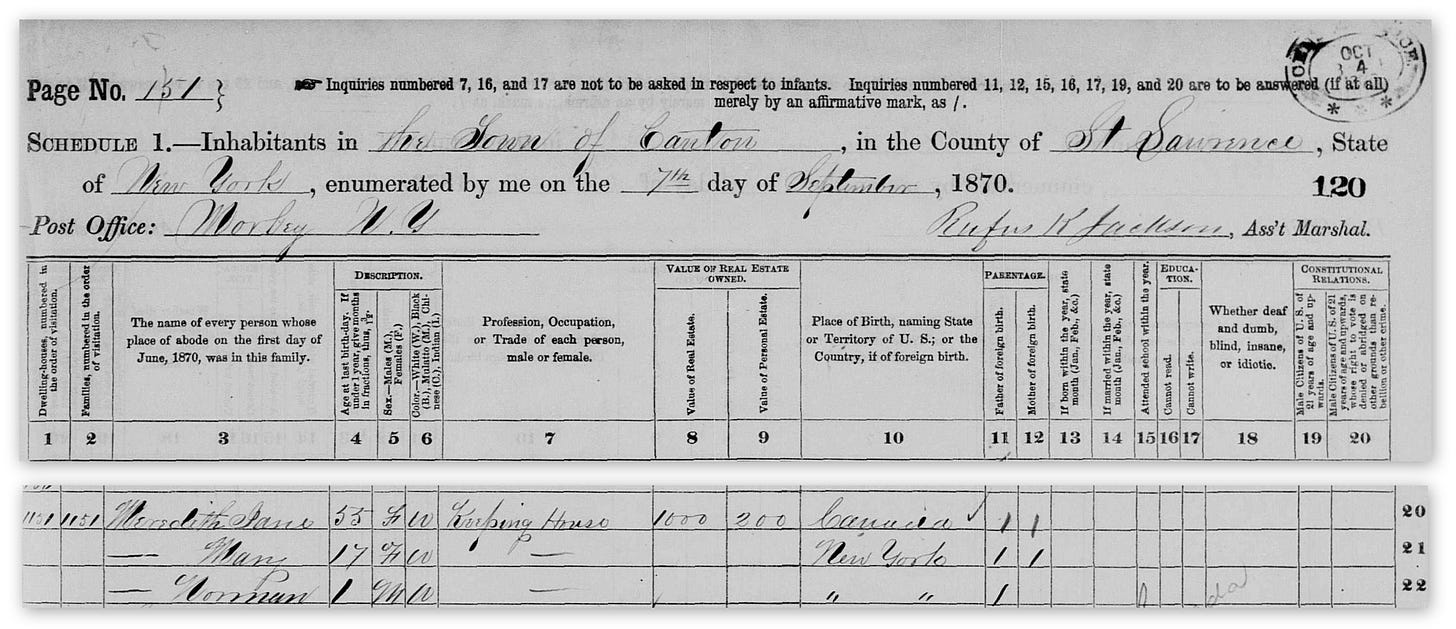 Page No. 151
☞ Inquiries numbered 7, 16, and 17 are not to be asked in respect to infants. Inquiries numbered 11, 12, 15, 16, 17, 19, and 20 are to be answered (if at all)
merely by an affirmative mark, as /.
OCT
4
SCHEDULE 1.—Inhabitants in the Town of Canton, in the County of St Lawrence, State
of New York, enumerated by me on the 7th day of September, 1870.
120
Post Office: Morley N.Y
Rufus K Jackson, Ass't Marshal.
Dwelling-houses, numbered in the order of visitation.
Families, numbered in the order of visitation.
The name of every person whose place of abode on the first day of June, 1870, was in this family.
DESCRIPTION.
Age at last birth-day. If under 1 year, give months in fractions, thus, 3/12.
Sex.—Males (M.), Females (F.)
Color.—White (W.), Black (B.), Mulatto (M.), Chinese (C.), Indian (I.)
Profession, Occupation, or Trade of each person, male or female.
VALUE OF REAL ESTATE OWNED.
Value of Real Estate.
Value of Personal Estate.
Place of Birth, naming State or Territory of U. S.; or the Country, if of foreign birth.
PARENTAGE.
Father of foreign birth.
Mother of foreign birth.
If born within the year, state month (Jan., Feb., &c.)
If married within the year, state month (Jan., Feb., &c.)
Attended school within the year.
EDUCATION.
Cannot read.
Cannot write.
Whether deaf and dumb, blind, insane, or idiotic.
CONSTITUTIONAL RELATIONS.
Male Citizens of U. S. of 21 years of age and upwards.
Male Citizens of U. S. of 21 years of age and upwards, whose right to vote is denied or abridged on other grounds than rebellion or other crime.
1 2 3 4 5 6 7 8 9 10 11 12 13 14 15 16 17 18 19 20
1151 1151 Meredith Jane 55 F W Keeping House 1000 200 Canada / / 20
— Mary 17 F W — New York / / 21
— Norman 1 M W — " " / 22